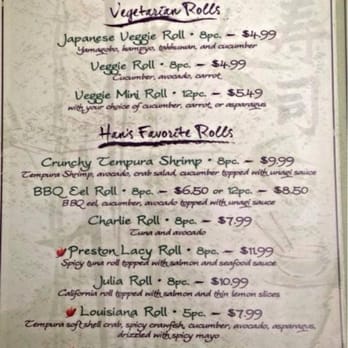 Vegetarian Rolls
Japanese Veggie Roll • 8pc. — $4.99
Yamagobo, kampyo, takkuwan, and cucumber
Veggie Roll • 8pc. — $4.99
Cucumber, avocado, carrot
Veggie Mini Roll • 12pc. — $5.49
with your choice of cucumber, carrot, or asparagus
Han's Favorite Rolls
Crunchy Tempura Shrimp • 8pc. — $9.99
Tempura Shrimp, avocado, crab salad, cucumber topped with unagi sauce
BBQ Eel Roll • 8pc. — $6.50 or 12pc. — $8.50
BBQ eel, cucumber, avocado topped with unagi sauce
Charlie Roll • 8pc. — $7.99
Tuna and avocado
Preston Lacy Roll • 8pc. — $11.99
Spicy tuna roll topped with salmon and seafood sauce
Julia Roll • 8pc. — $10.99
California roll topped with salmon and thin lemon slices
Louisiana Roll • 5pc. — $7.99
Tempura soft shell crab, spicy crawfish, cucumber, avocado, asparagus,
drizzled with spicy mayo